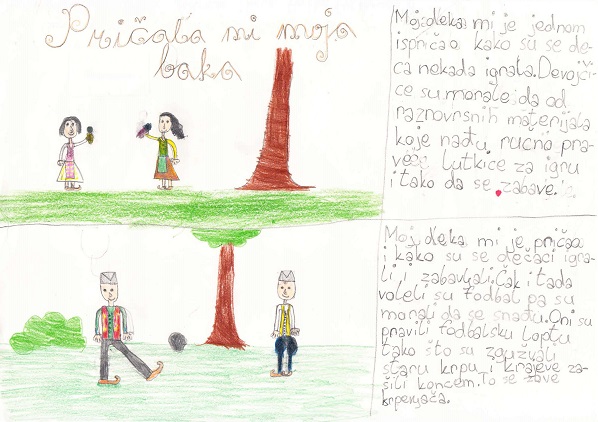 Pričala mi moja
baka
Moj deka mi je jednom
ispričao kako su se de-
ca nekada igrala. Devojči-
ce su morale da od
raznovrsnih materijala
koje nađu, ručno pra-
ve lutkice za igru
i tako da se zabave.
Moj deka mi je pričao
i kako su se dečaci igra-
li i zabavljali. Čak i tada
voleli su fodbal pa su
morali da se snađu. Oni su
pravili fodbalsku loptu
tako što su zgužvali
staru krpu i krajeve za-
šili koncem. To se zove
krpenjača.